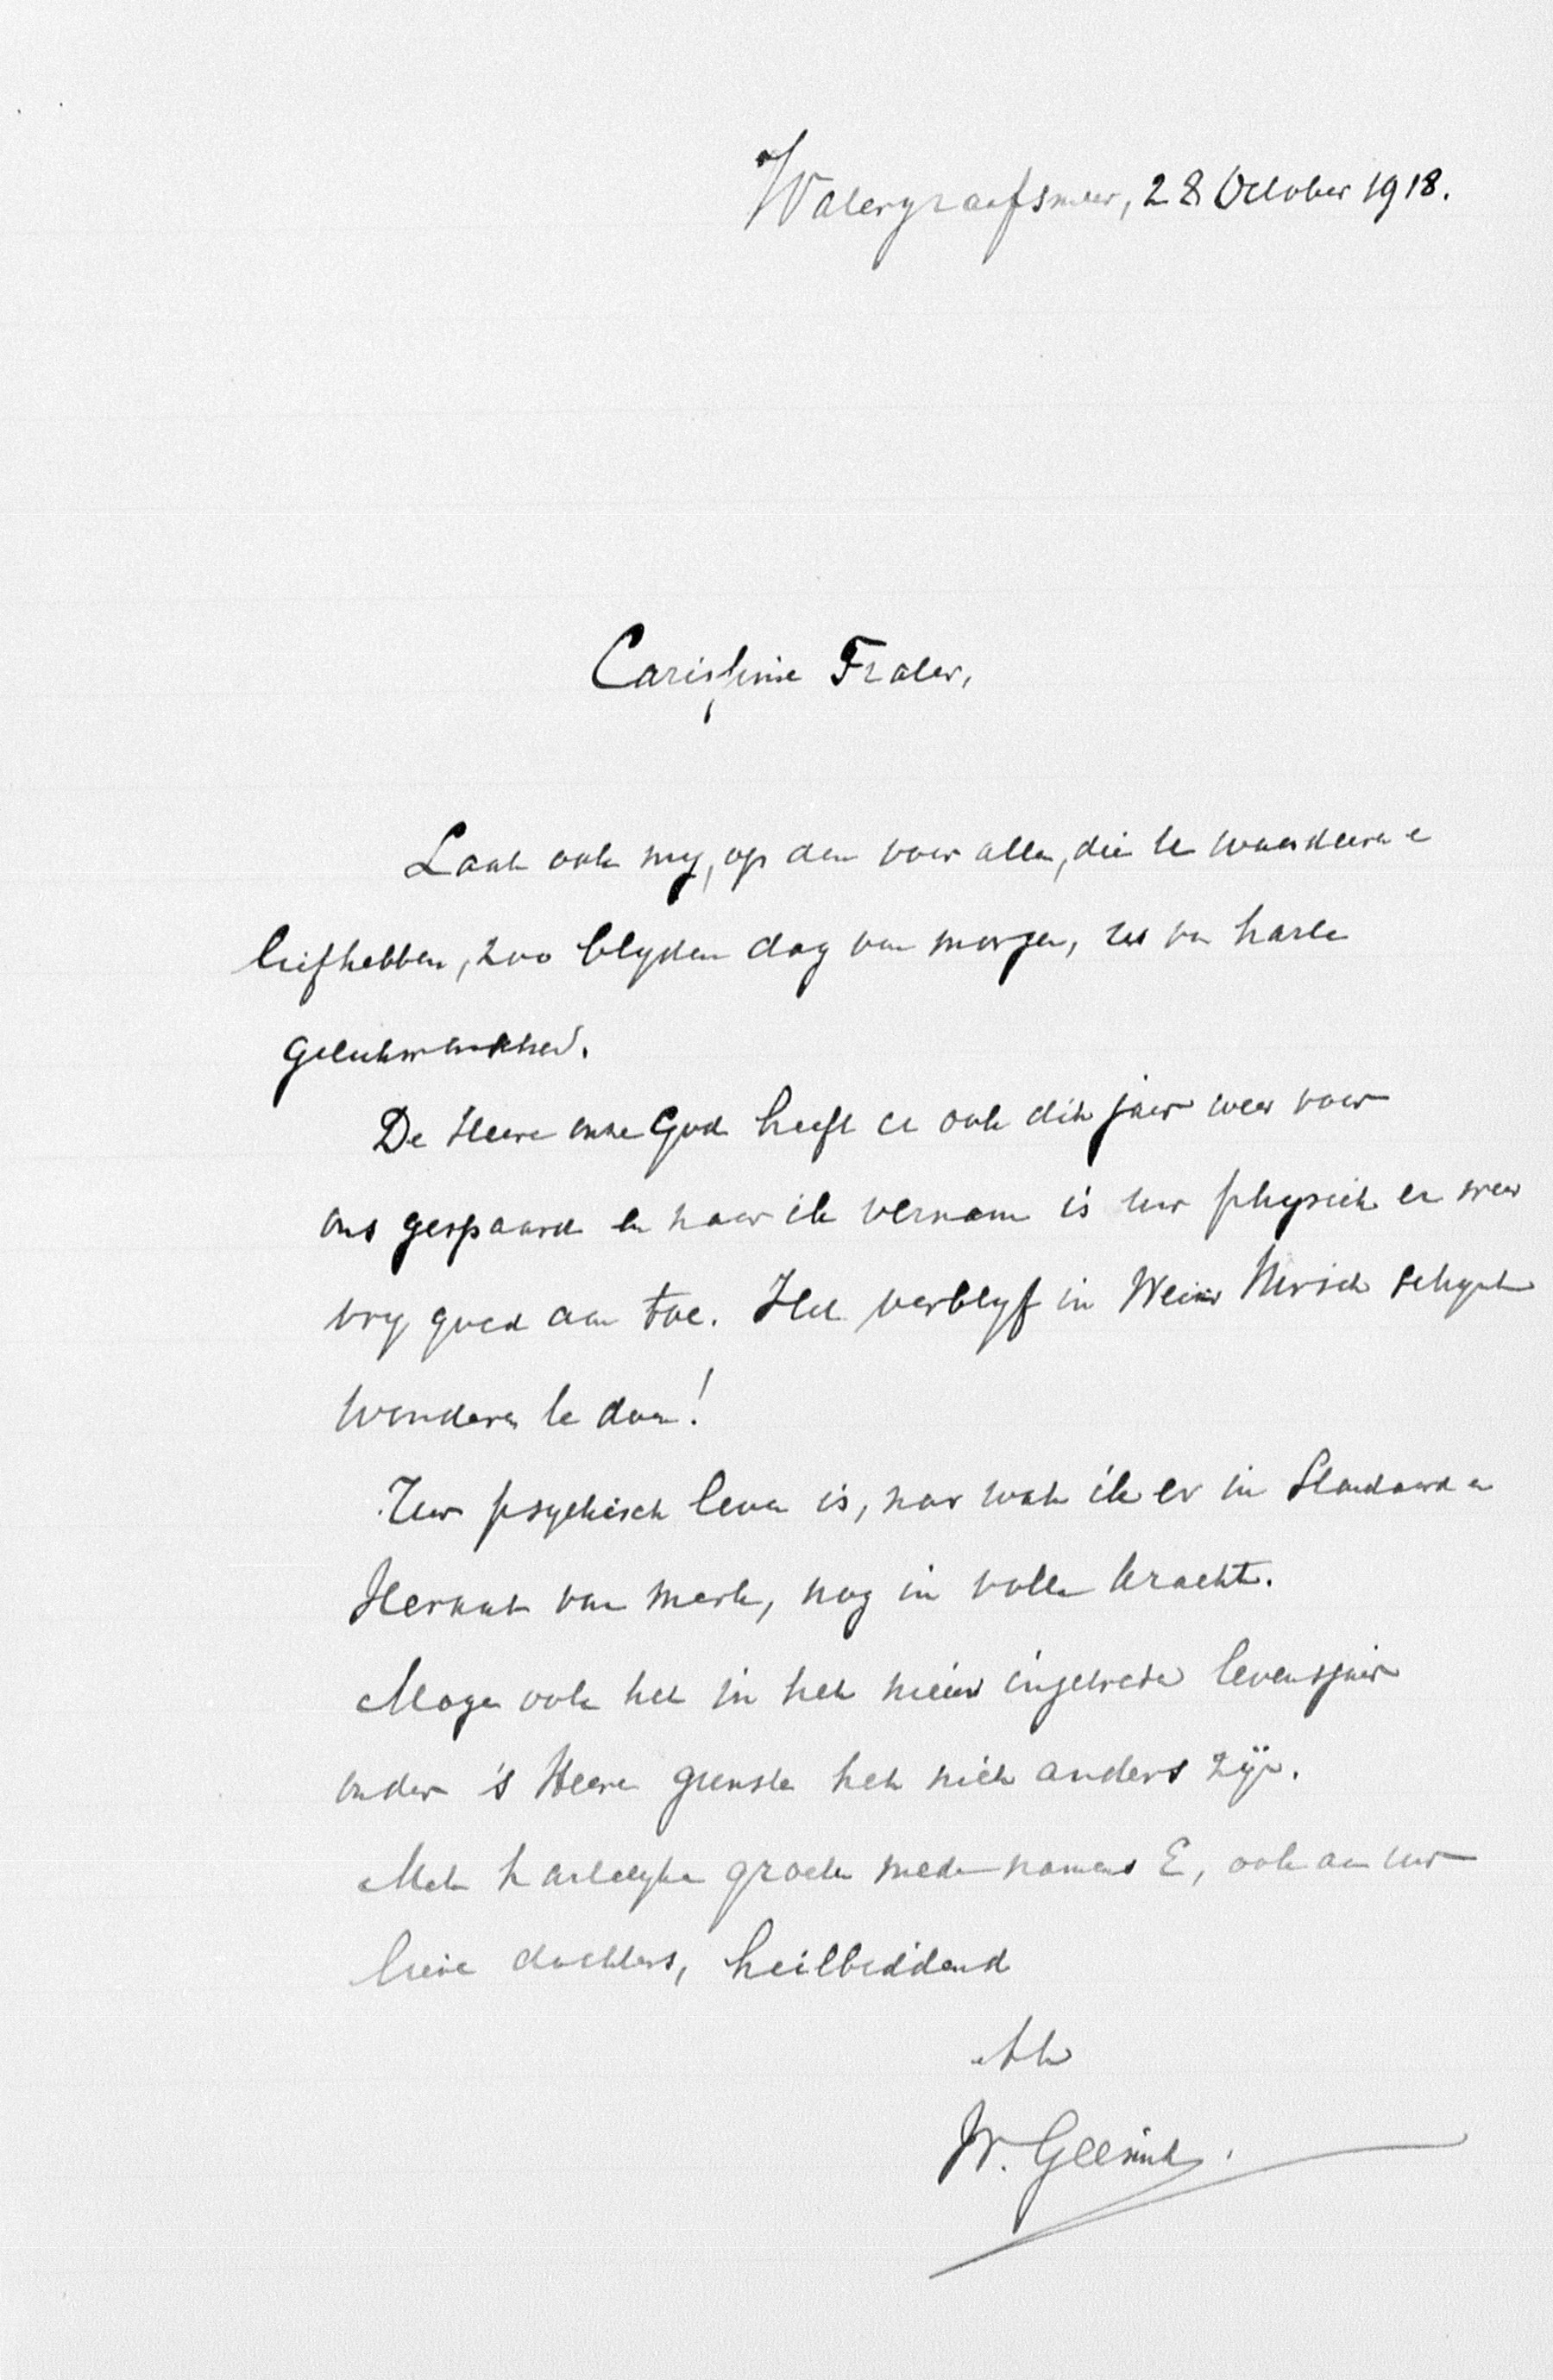 Watergraafsmeer, 28 October 1918.
Carissime Frater,
Laat ook my, op den voor allen, die U waardeeren en
liefhebben, zoo blyden dag van morgen, U van harte
gelukwenschen.
De Heere onze God heeft U ook dit jaar weer voor
ons gespaard en naar ik vernam is uw physiek er weer
vry goed aan toe. Het verblyf in Weisser Hirsch schynt
wonderen te doen!
Uw psychisch leven is, naar wat ik er in Standaard en
Heraut van merk, nog in volle kracht.
Moge ook het in het nieuw ingetreden levensjaar
onder 's Heeren gunste het niet anders zijn.
Met hartelyke groeten mede namens E, ook aan uw
lieve dochters, heilbiddend
W. Geesink.